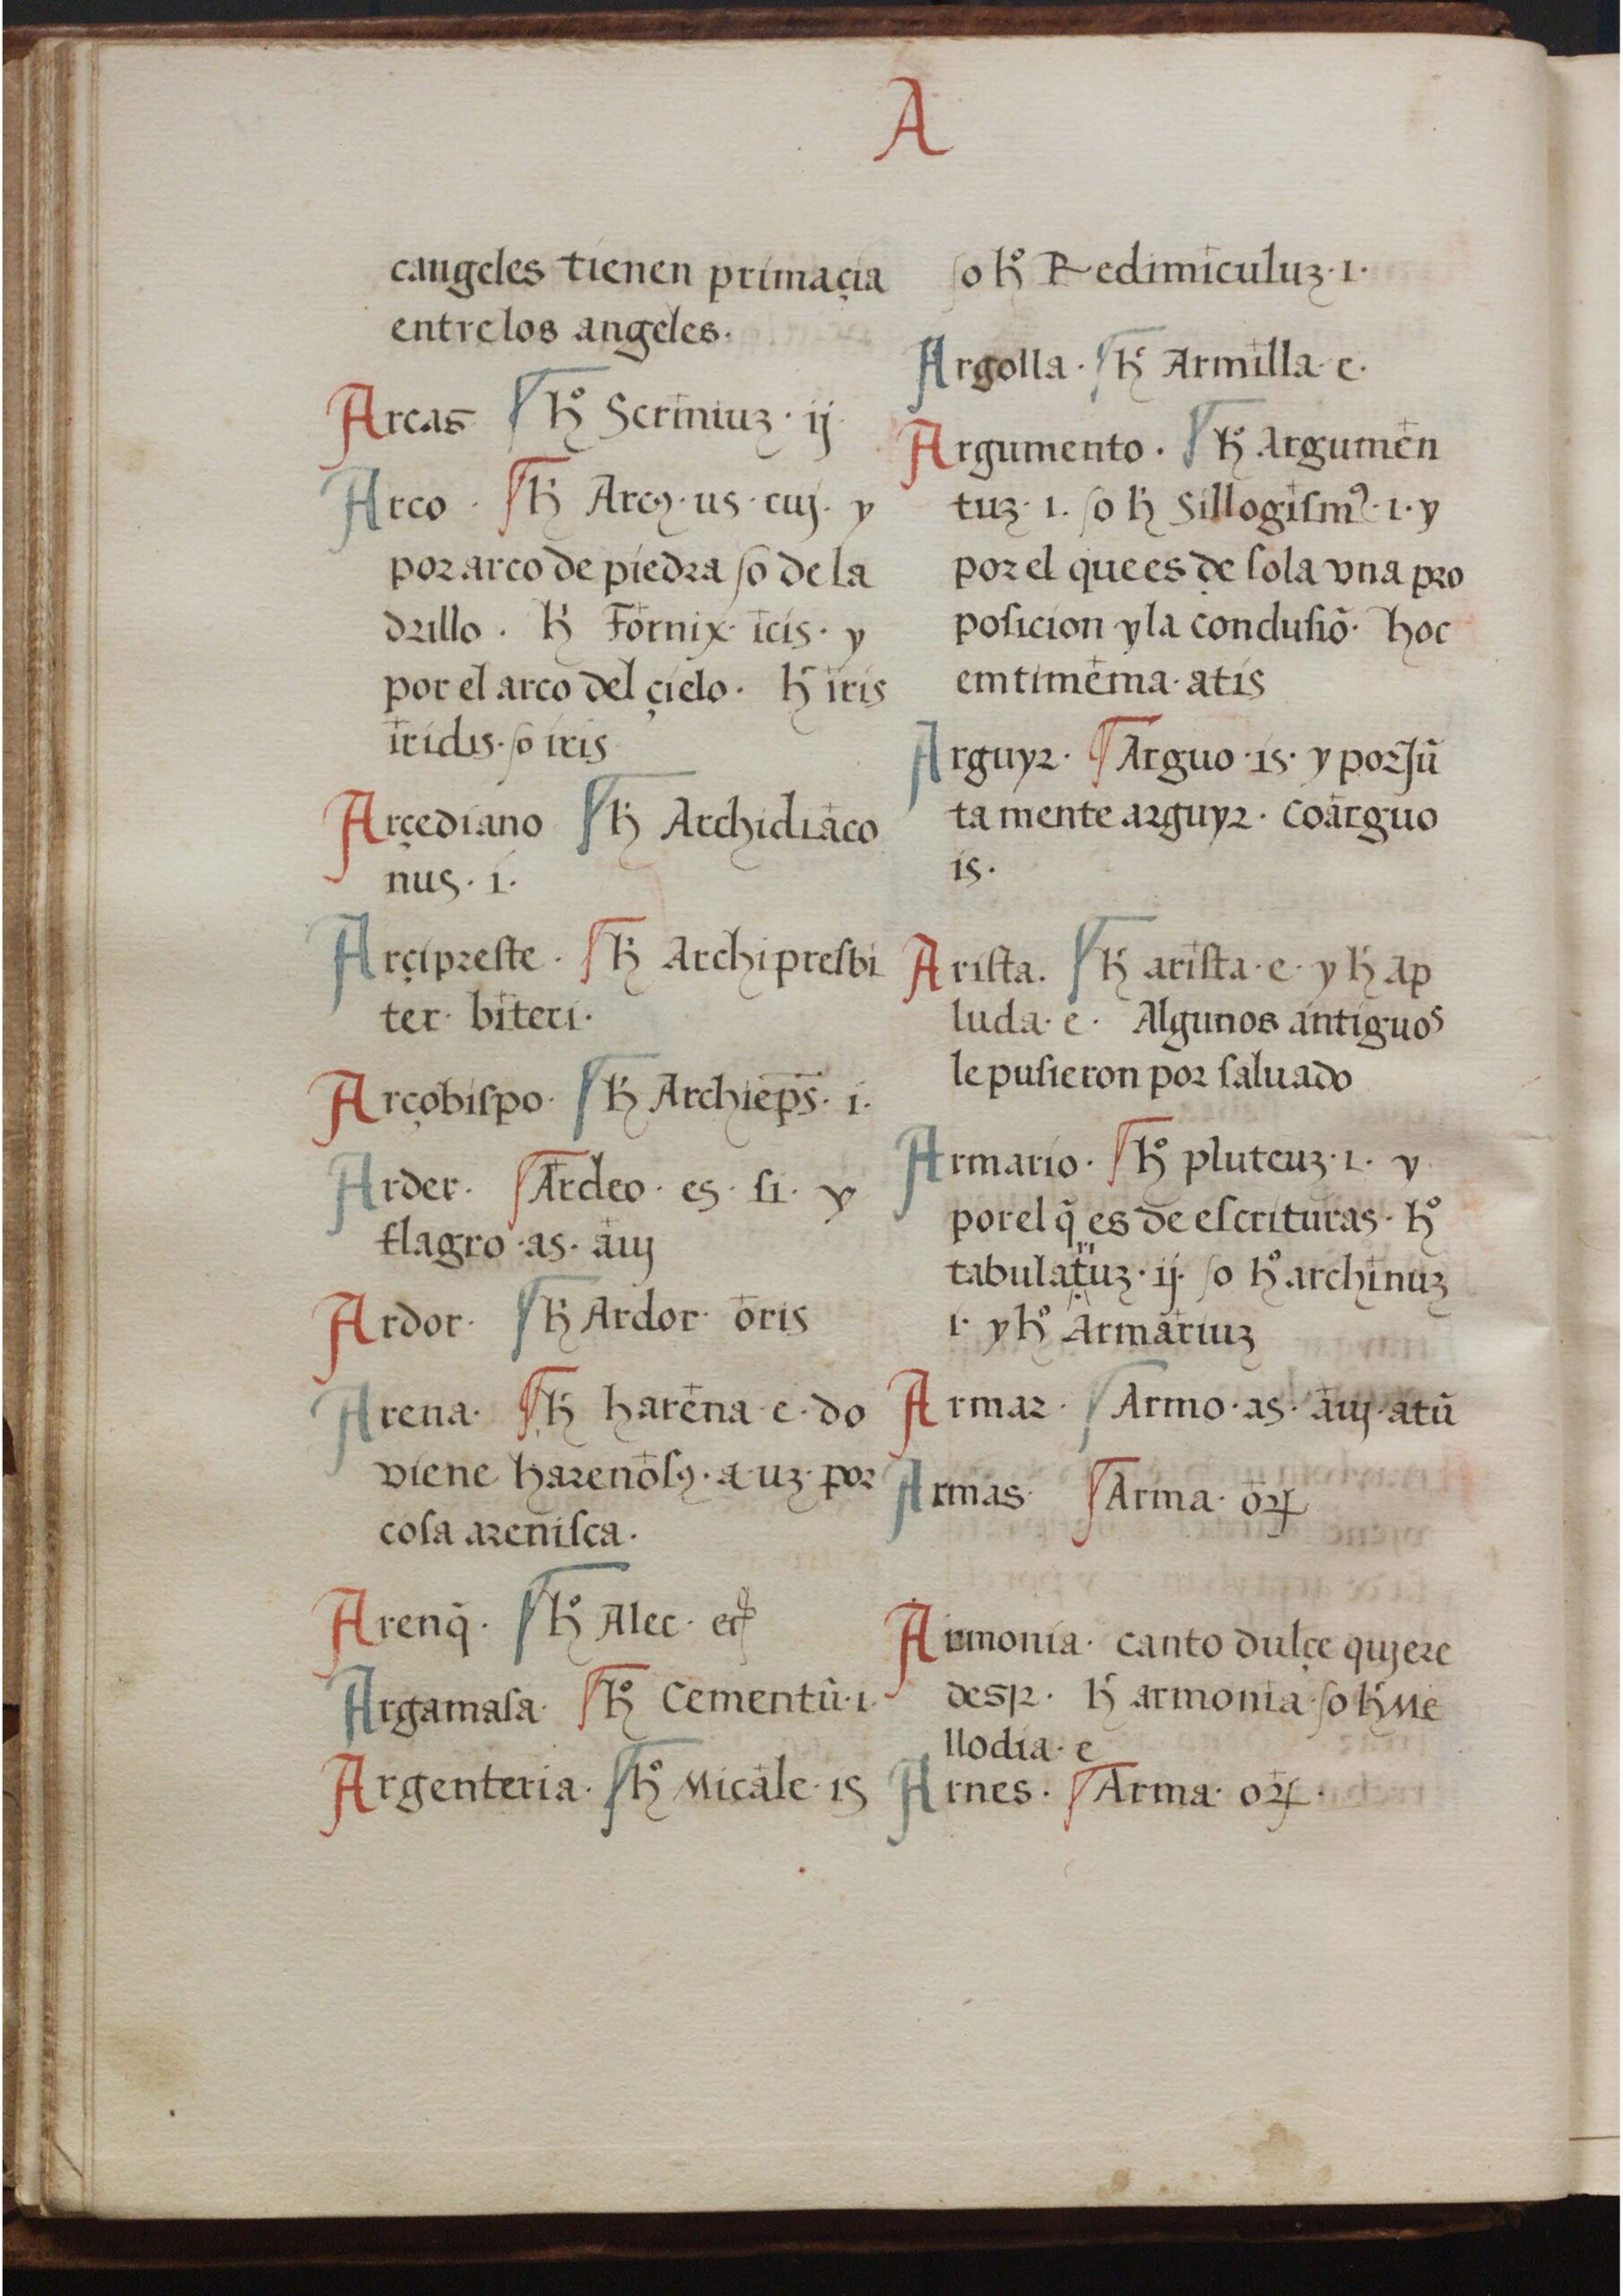 A
cangeles tienen primaçia
entre los angeles.
Arcas ¶ hº Scriniuȝ · ij·
Arco · ¶ h̄ Arcꝯ · us · cuj · y
por arco de piedra so de la
drillo · h̄ Fornix · icis · y
por el arco del çielo · h̄ iris
iridis · so iris
Arçediano ¶ h̄ Archidiaco
nus · i ·
Arçipreste · ¶ h̄ Archipresbi
ter · biteri ·
Arçobispo · ¶ h̄ Archiep̄s · i ·
Arder · ¶ Ardeo · es · si · y
flagro · as · auj
Ardor · ¶ h̄ Ardor · oris
Arena · ¶ h̄ harena · e · do
viene harenosꝯ · a · uȝ · por
cosa arenisca ·
Arenq̄ · ¶ hº Alec · 
Argamasa · ¶ hº Cementū · i ·
Argenteria · ¶ hº Micale · is
so hº Redimiculuȝ · i ·
Argolla · ¶ h̄ Armilla · e ·
Argumento · ¶ hº Argumen
tuȝ · i · so h̄ Sillogismꝰ · i · y
por el que es de sola vna pro
posicion y la conclusiō · hoc
emtimema · atis
Arguyr · ¶ Arguo · is · y por Jū
ta mente arguyr · Coarguo
is ·
Arista · ¶ h̄ arista · e · y h̄ ap
luda · e · Algunos antiguos
le pusieron por saluado
Armario · ¶ hº pluteuȝ · i · y
por el q̄ es de escrituras · hº
tabulatuȝ · ij · so hº archinuȝ
i · y hº Armariuȝ
Armar · ¶ Armo · as · auj · atū
Armas · ¶ Arma · oꝝ
Armonia · canto dulçe qujere
desir · h̄ armonia · so h̄ Me
llodia · e
Arnes · ¶ Arma · oꝝ ·